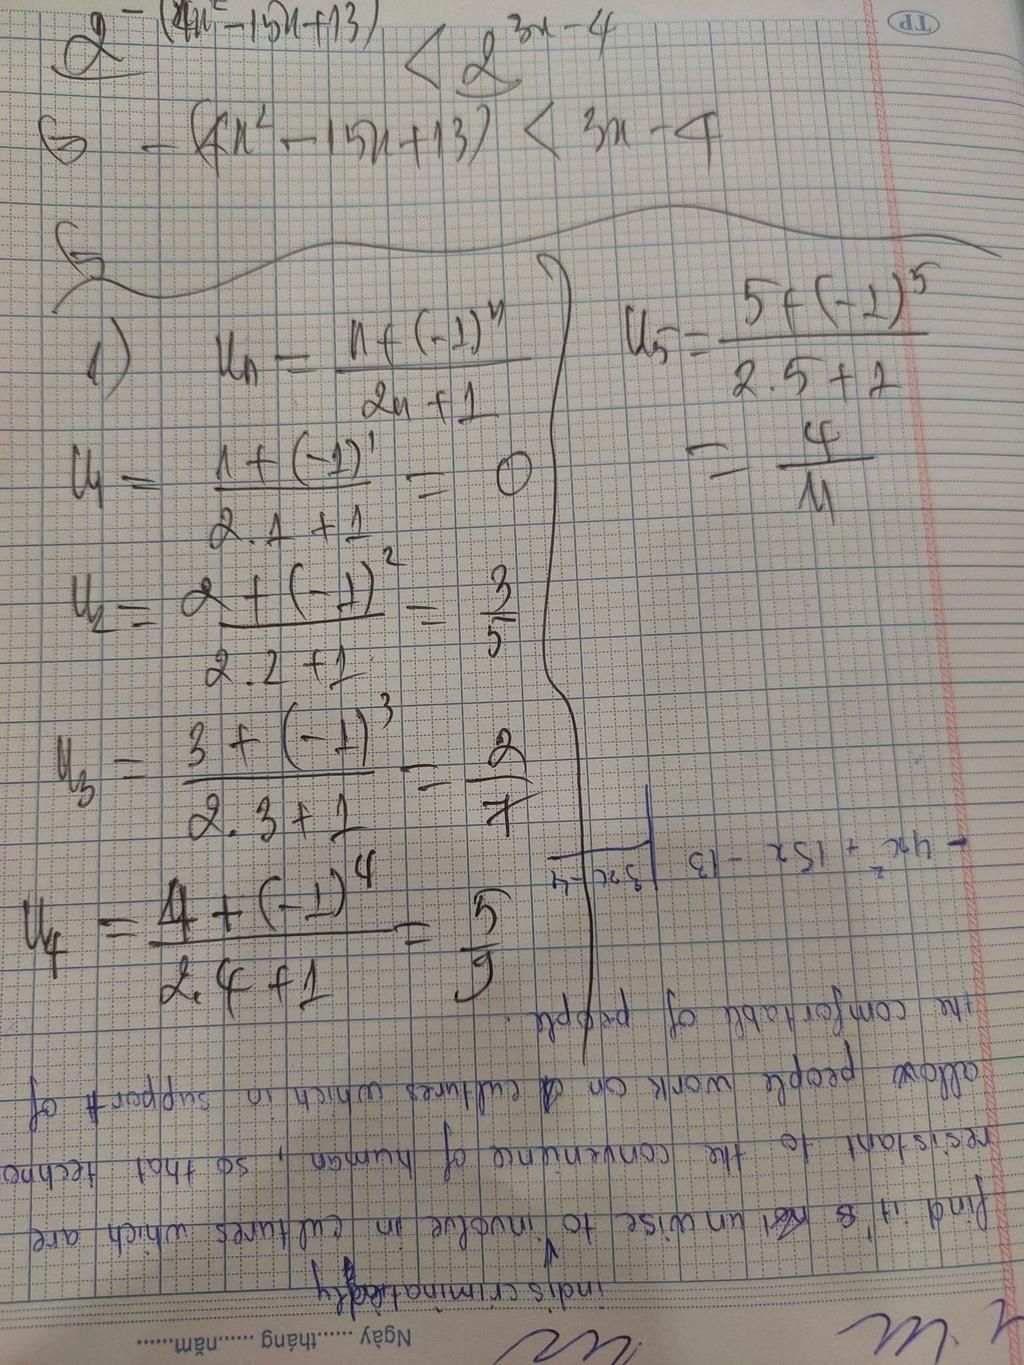 TP
2^{-(4x²-15x+13)} < 2^{3x-4}
- (4x² - 15x + 13) < 3x - 4
1) Un = \frac{n+(-1)^n}{2n+1}
U1 = \frac{1+(-1)^1}{2.1+1} = 0
U2 = \frac{2+(-1)^2}{2.2+1} = \frac{3}{5}
U3 = \frac{3+(-1)^3}{2.3+1} = \frac{2}{7}
U4 = \frac{4+(-1)^4}{2.4+1} = \frac{5}{9}
U5 = \frac{5+(-1)^5}{2.5+1}
= \frac{4}{11}
Ngày ....... tháng ....... năm.......
indiscriminately
find it's unwise to involve in cultures which are
resistant to the convenience of human, so that techno
allow people work on cultures which in support of
the comfortable of people.
- 4x² + 15x - 13 | 3x - 4